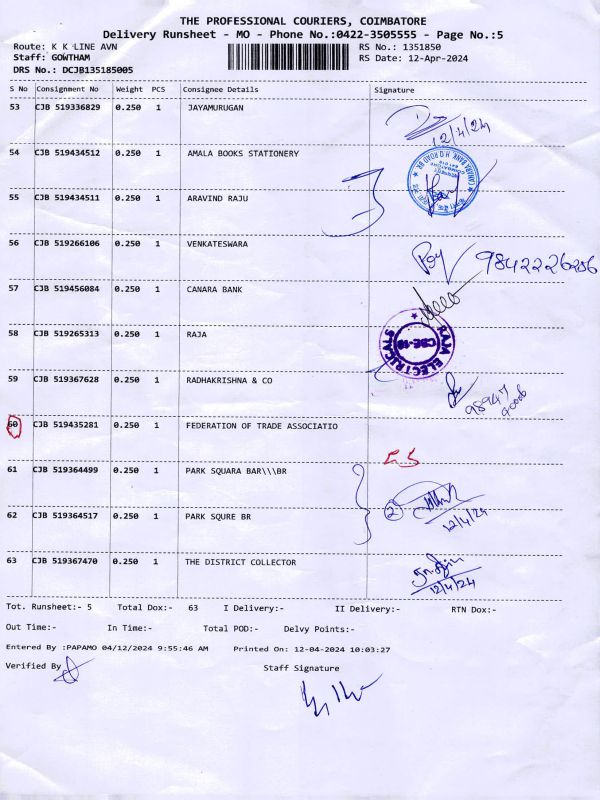 THE PROFESSIONAL COURIERS, COIMBATORE
Delivery Runsheet - MO - Phone No.:0422-3505555 - Page No.:5
Route: K K LINE AVN RS No.: 1351850
Staff: GOWTHAM RS Date: 12-Apr-2024
DRS No.: DCJB135185005
S No Consignment No Weight PCS Consignee Details Signature
53 CJB 519336829 0.250 1 JAYAMURUGAN
12/4/24
54 CJB 519434512 0.250 1 AMALA BOOKS STATIONERY
55 CJB 519434511 0.250 1 ARAVIND RAJU
56 CJB 519266106 0.250 1 VENKATESWARA
9842226206
57 CJB 519456084 0.250 1 CANARA BANK
58 CJB 519265313 0.250 1 RAJA
RAJA ELECTRIC
CBE-18
59 CJB 519367628 0.250 1 RADHAKRISHNA & CO
98947
60 CJB 519435281 0.250 1 FEDERATION OF TRADE ASSOCIATIO
61 CJB 519364499 0.250 1 PARK SQUARA BAR\\\BR
2
62 CJB 519364517 0.250 1 PARK SQURE BR
12/4/24
63 CJB 519367470 0.250 1 THE DISTRICT COLLECTOR
12/4/24
Tot. Runsheet:- 5 Total Dox:- 63 I Delivery:- II Delivery:- RTN Dox:-
Out Time:- In Time:- Total POD:- Delvy Points:-
Entered By :PAPAMO 04/12/2024 9:55:46 AM Printed On: 12-04-2024 10:03:27
Verified By Staff Signature